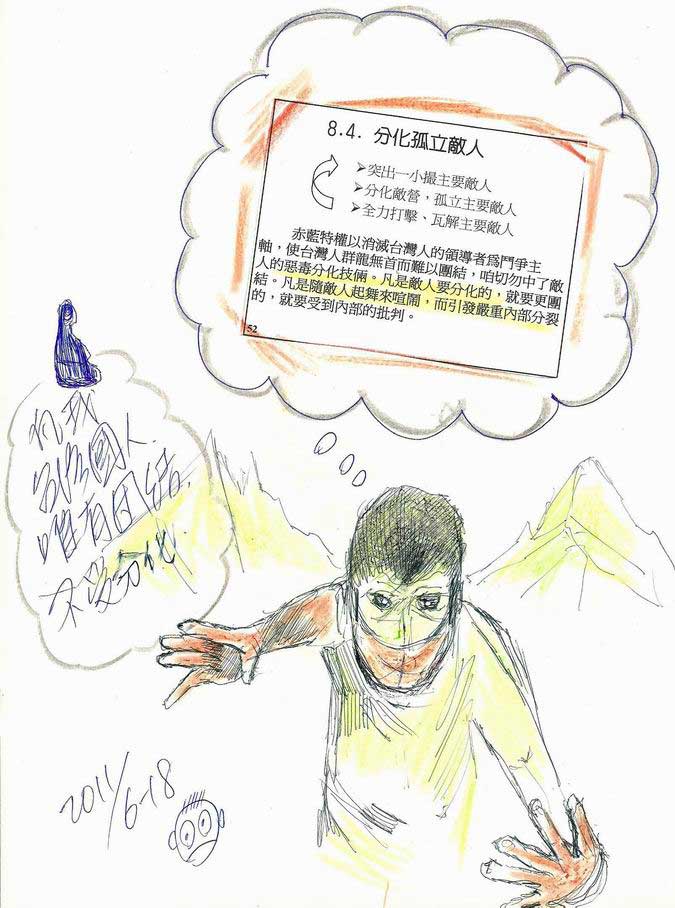 8.4. 分化孤立敵人
➢突出一小撮主要敵人
➢分化敵營，孤立主要敵人
➢全力打擊、瓦解主要敵人
赤藍特權以消滅台灣人的領導者為鬥爭主
軸，使台灣人群龍無首而難以團結，咱切勿中了敵
人的惡毒分化技倆。凡是敵人要分化的，就要更團
結。凡是隨敵人起舞來喧鬧，而引發嚴重內部分裂
的，就要受到內部的批判。
52
我
國人.
唯有团結.
不受分化
2011/6-18